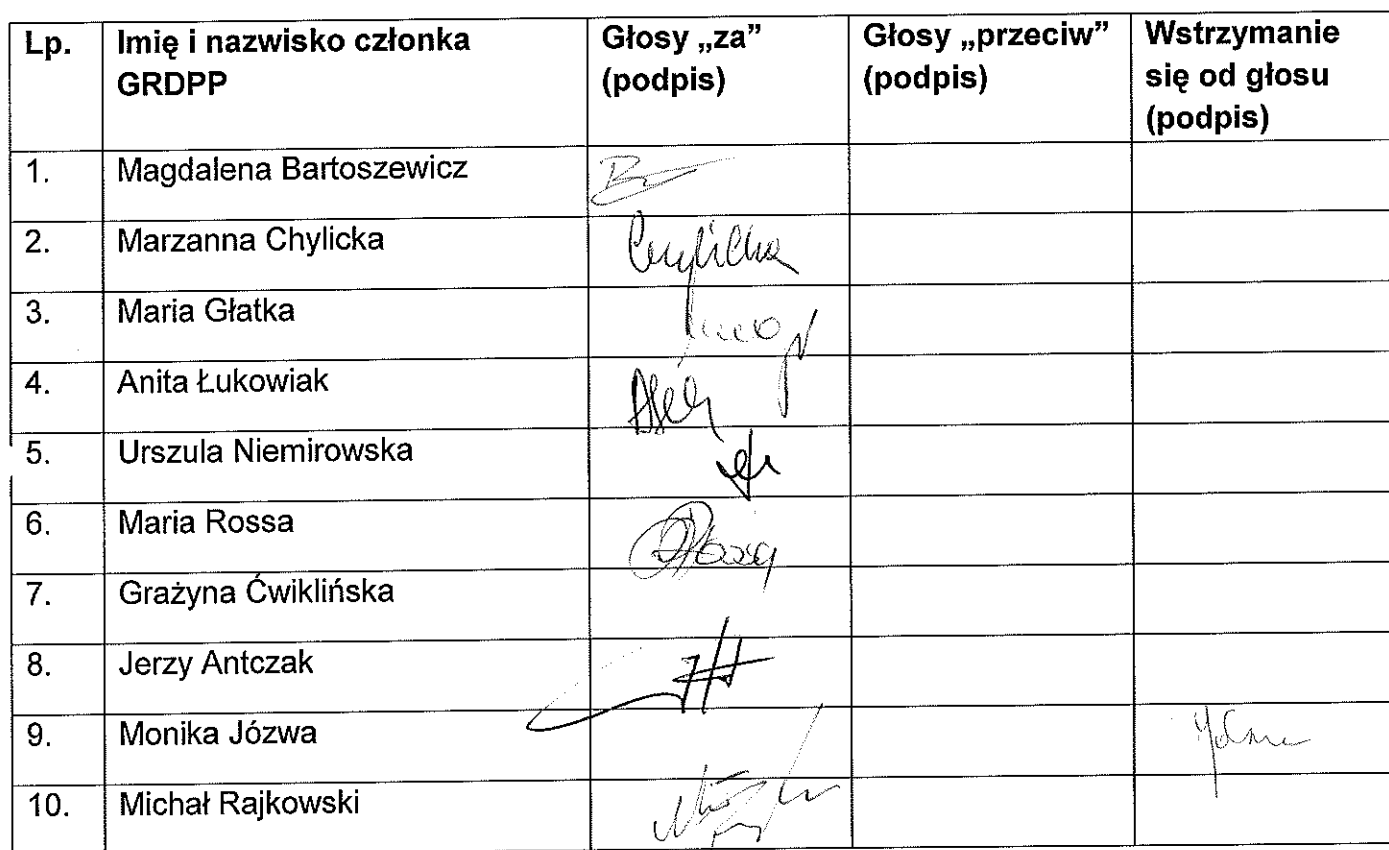 Lp. Imię i nazwisko członka GRDPP Głosy „za” (podpis) Głosy „przeciw” (podpis) Wstrzymanie się od głosu (podpis)
1. Magdalena Bartoszewicz
2. Marzanna Chylicka Chylicka
3. Maria Głatka
4. Anita Łukowiak
5. Urszula Niemirowska
6. Maria Rossa
7. Grażyna Ćwiklińska
8. Jerzy Antczak
9. Monika Józwa
10. Michał Rajkowski